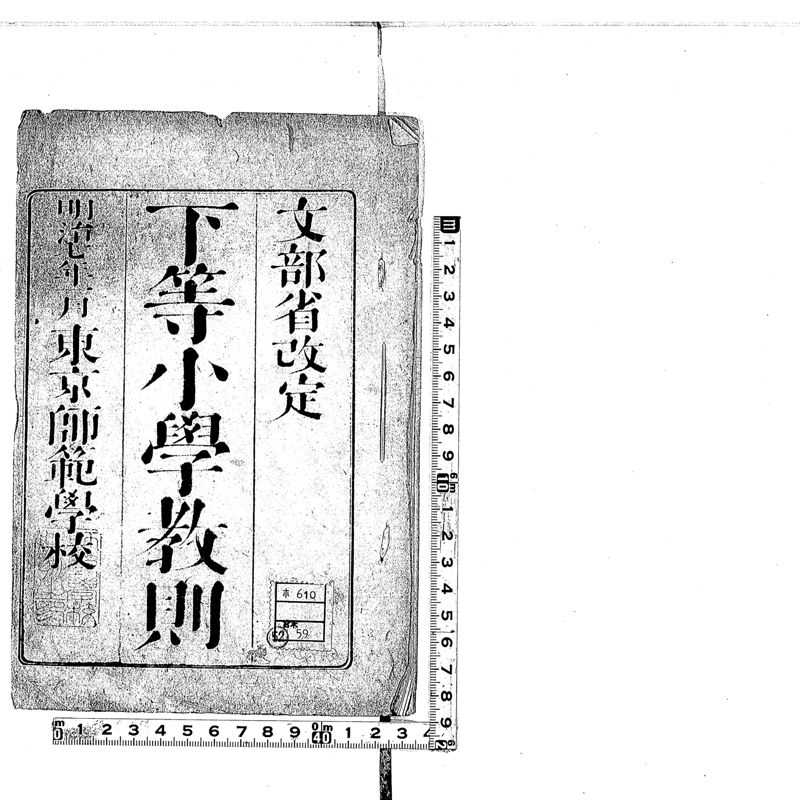 文部省改定
下等小學教則
明治七年 月 東京師範學校
ホ 610
59
52
m 1 2 3 4 5 6 7 8 9 10 1 2 3 4 5 6 7 8 9
0 1 2 3 4 5 6 7 8 9 10 1 2 3 4